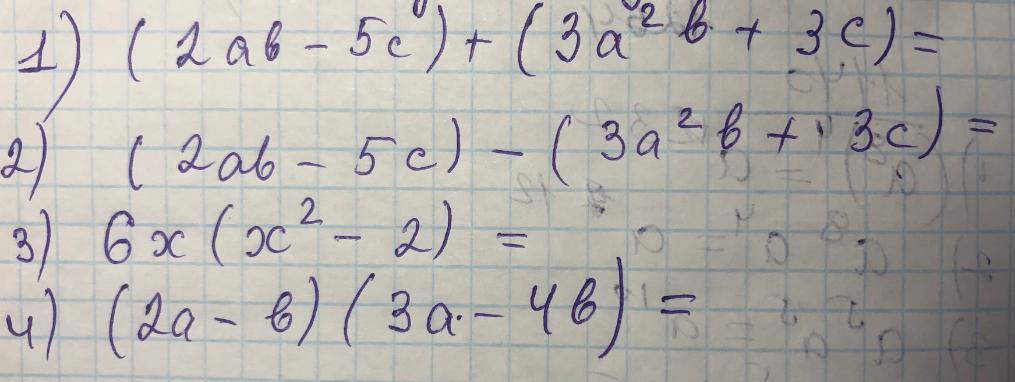 1) (2ab - 5c) + (3a²b + 3c) =
2) (2ab - 5c) - (3a²b + 3c) =
3) 6x(x² - 2) =
4) (2a - b)(3a - 4b) =